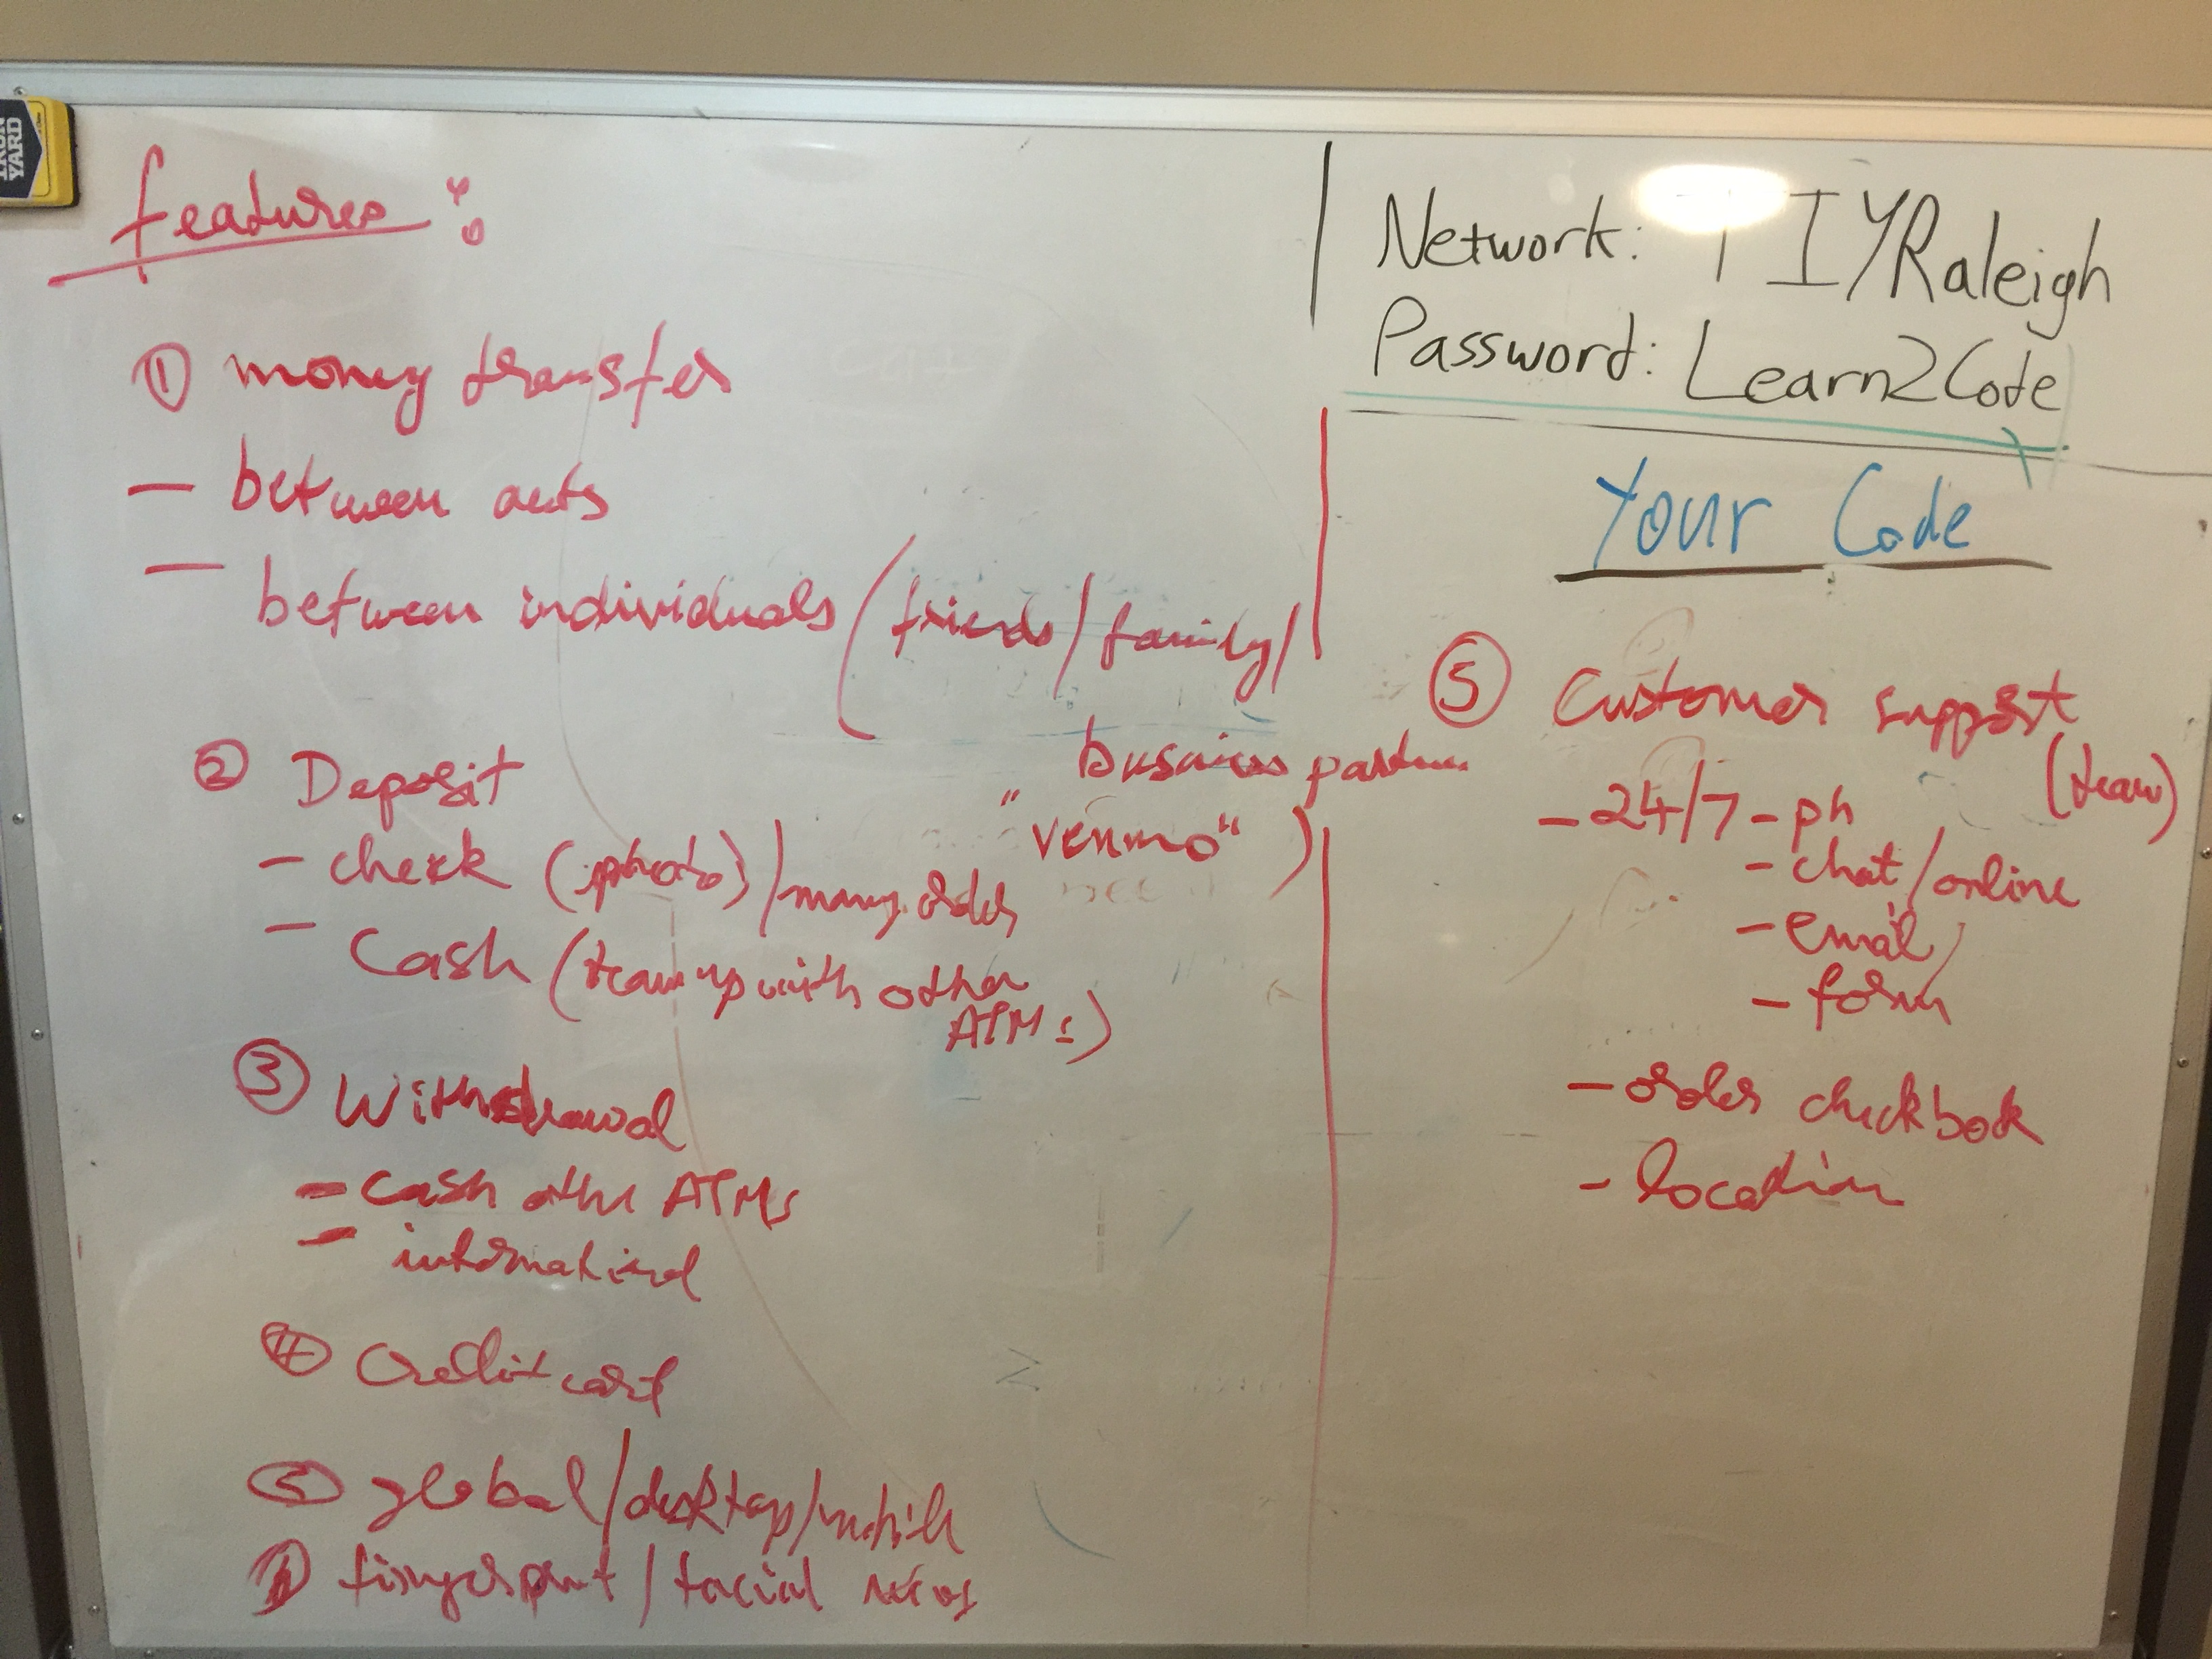 IRON
YARD
features :
① money transfer
— between accts
— between individuals (friends/family/
business partner
"venmo" )
② Deposit
- check (photo)/money order
- Cash (team up with other
ATMs)
③ Withdrawal
- cash other ATMs
- international
④ Credit card
⑤ global/desktop/mobile
⑥ fingerprint/facial
Network: TIYRaleigh
Password: Learn2Code
Your Code
⑤ Customer support
(team)
- 24/7 - ph
- chat/online
- email
- form
- order checkbook
- location